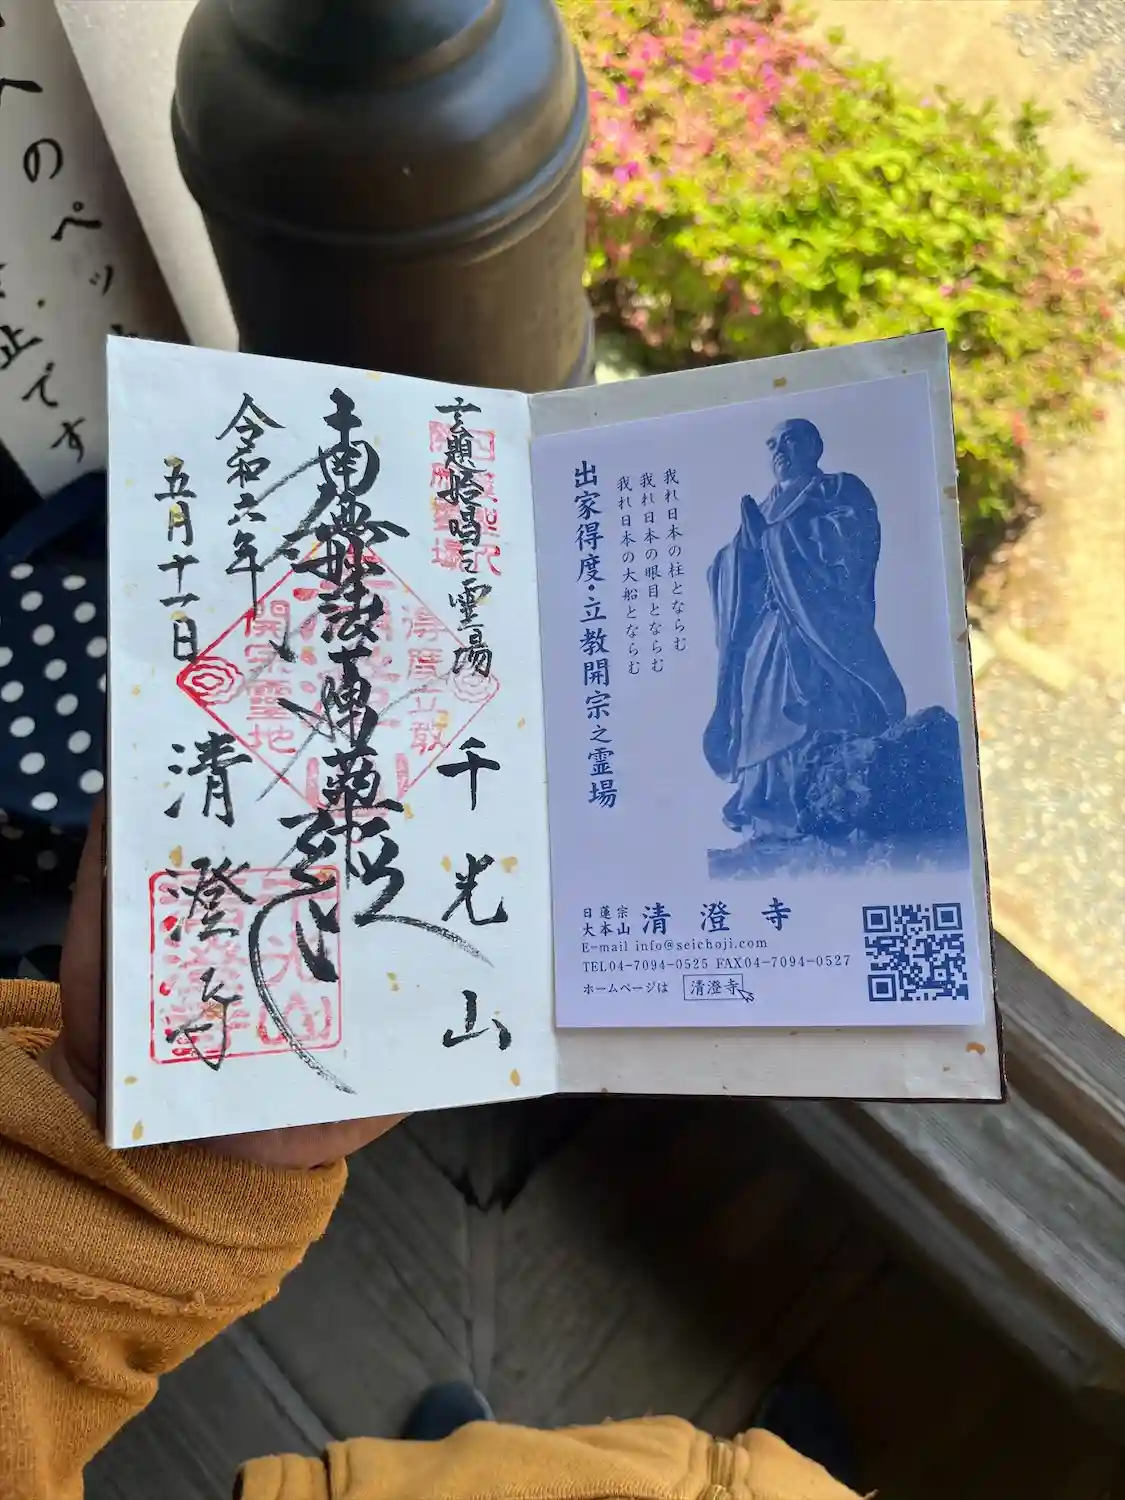 への
ペッ
止です
玄題始唱之霊場
千光山
南無妙法蓮華経
令和六年
五月十一日
清澄寺
得度立教
開宗霊地
千光山
清澄寺
我れ日本の柱とならむ
我れ日本の眼目とならむ
我れ日本の大船とならむ
出家得度・立教開宗之霊場
日蓮宗
大本山
清澄寺
E-mail info@seichoji.com
TEL04-7094-0525 FAX04-7094-0527
ホームページは 清澄寺